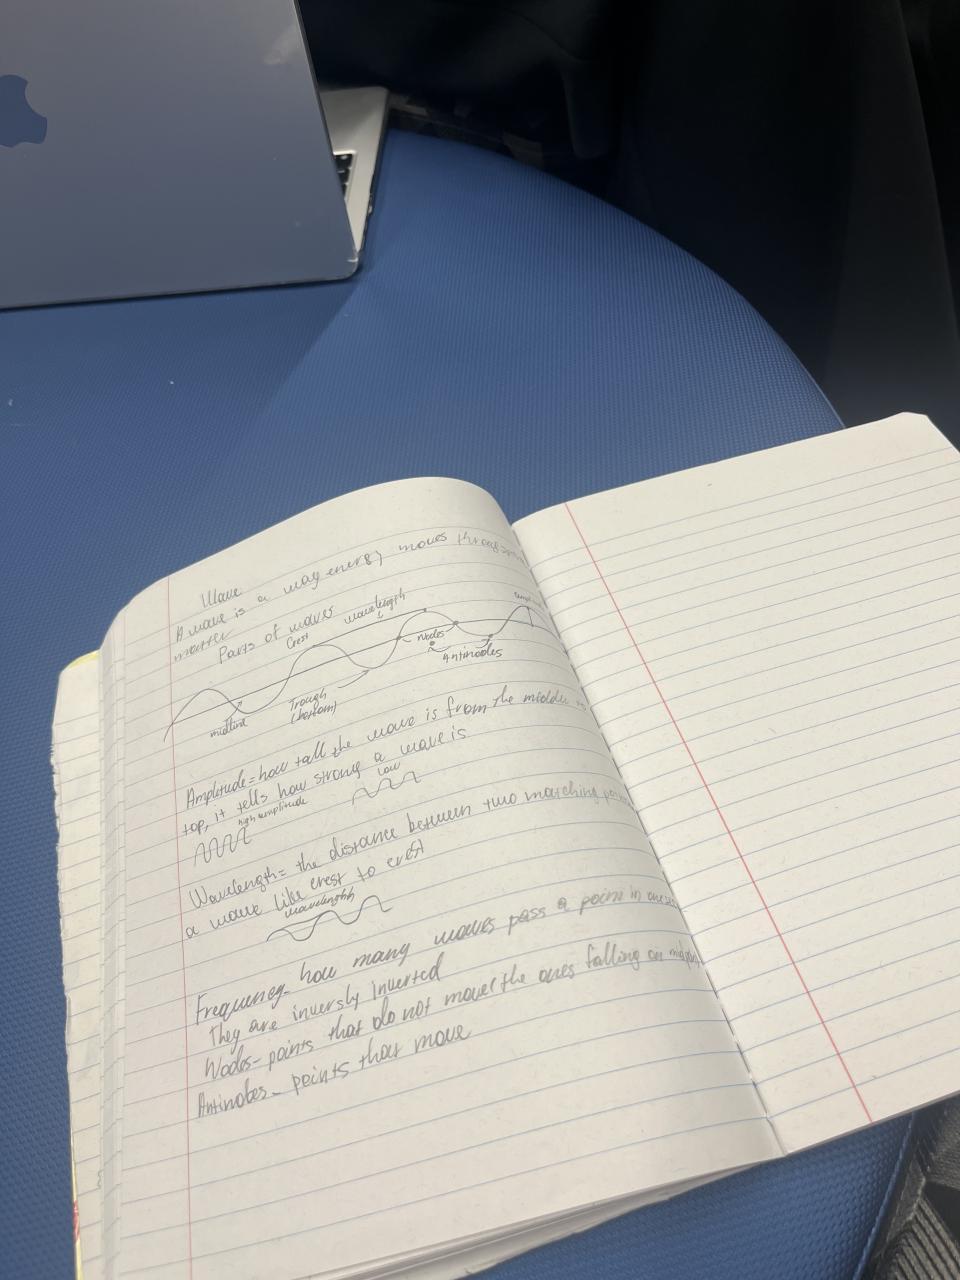 Wave
A wave is a way energy moves through
matter
Parts of waves
Crest wavelength
Nodes
Antinodes
Trough
(bottom)
midline
Amplitude = how tall the wave is from the middle to
top, it tells how strong a wave is
high amplitude Low
Wavelength = the distance between two matching
a wave like crest to crest
wavelength
Frequency - how many waves pass a point in one
They are inversly inverted
Nodes - points that do not move (the ones falling on
Antinobes - points that move